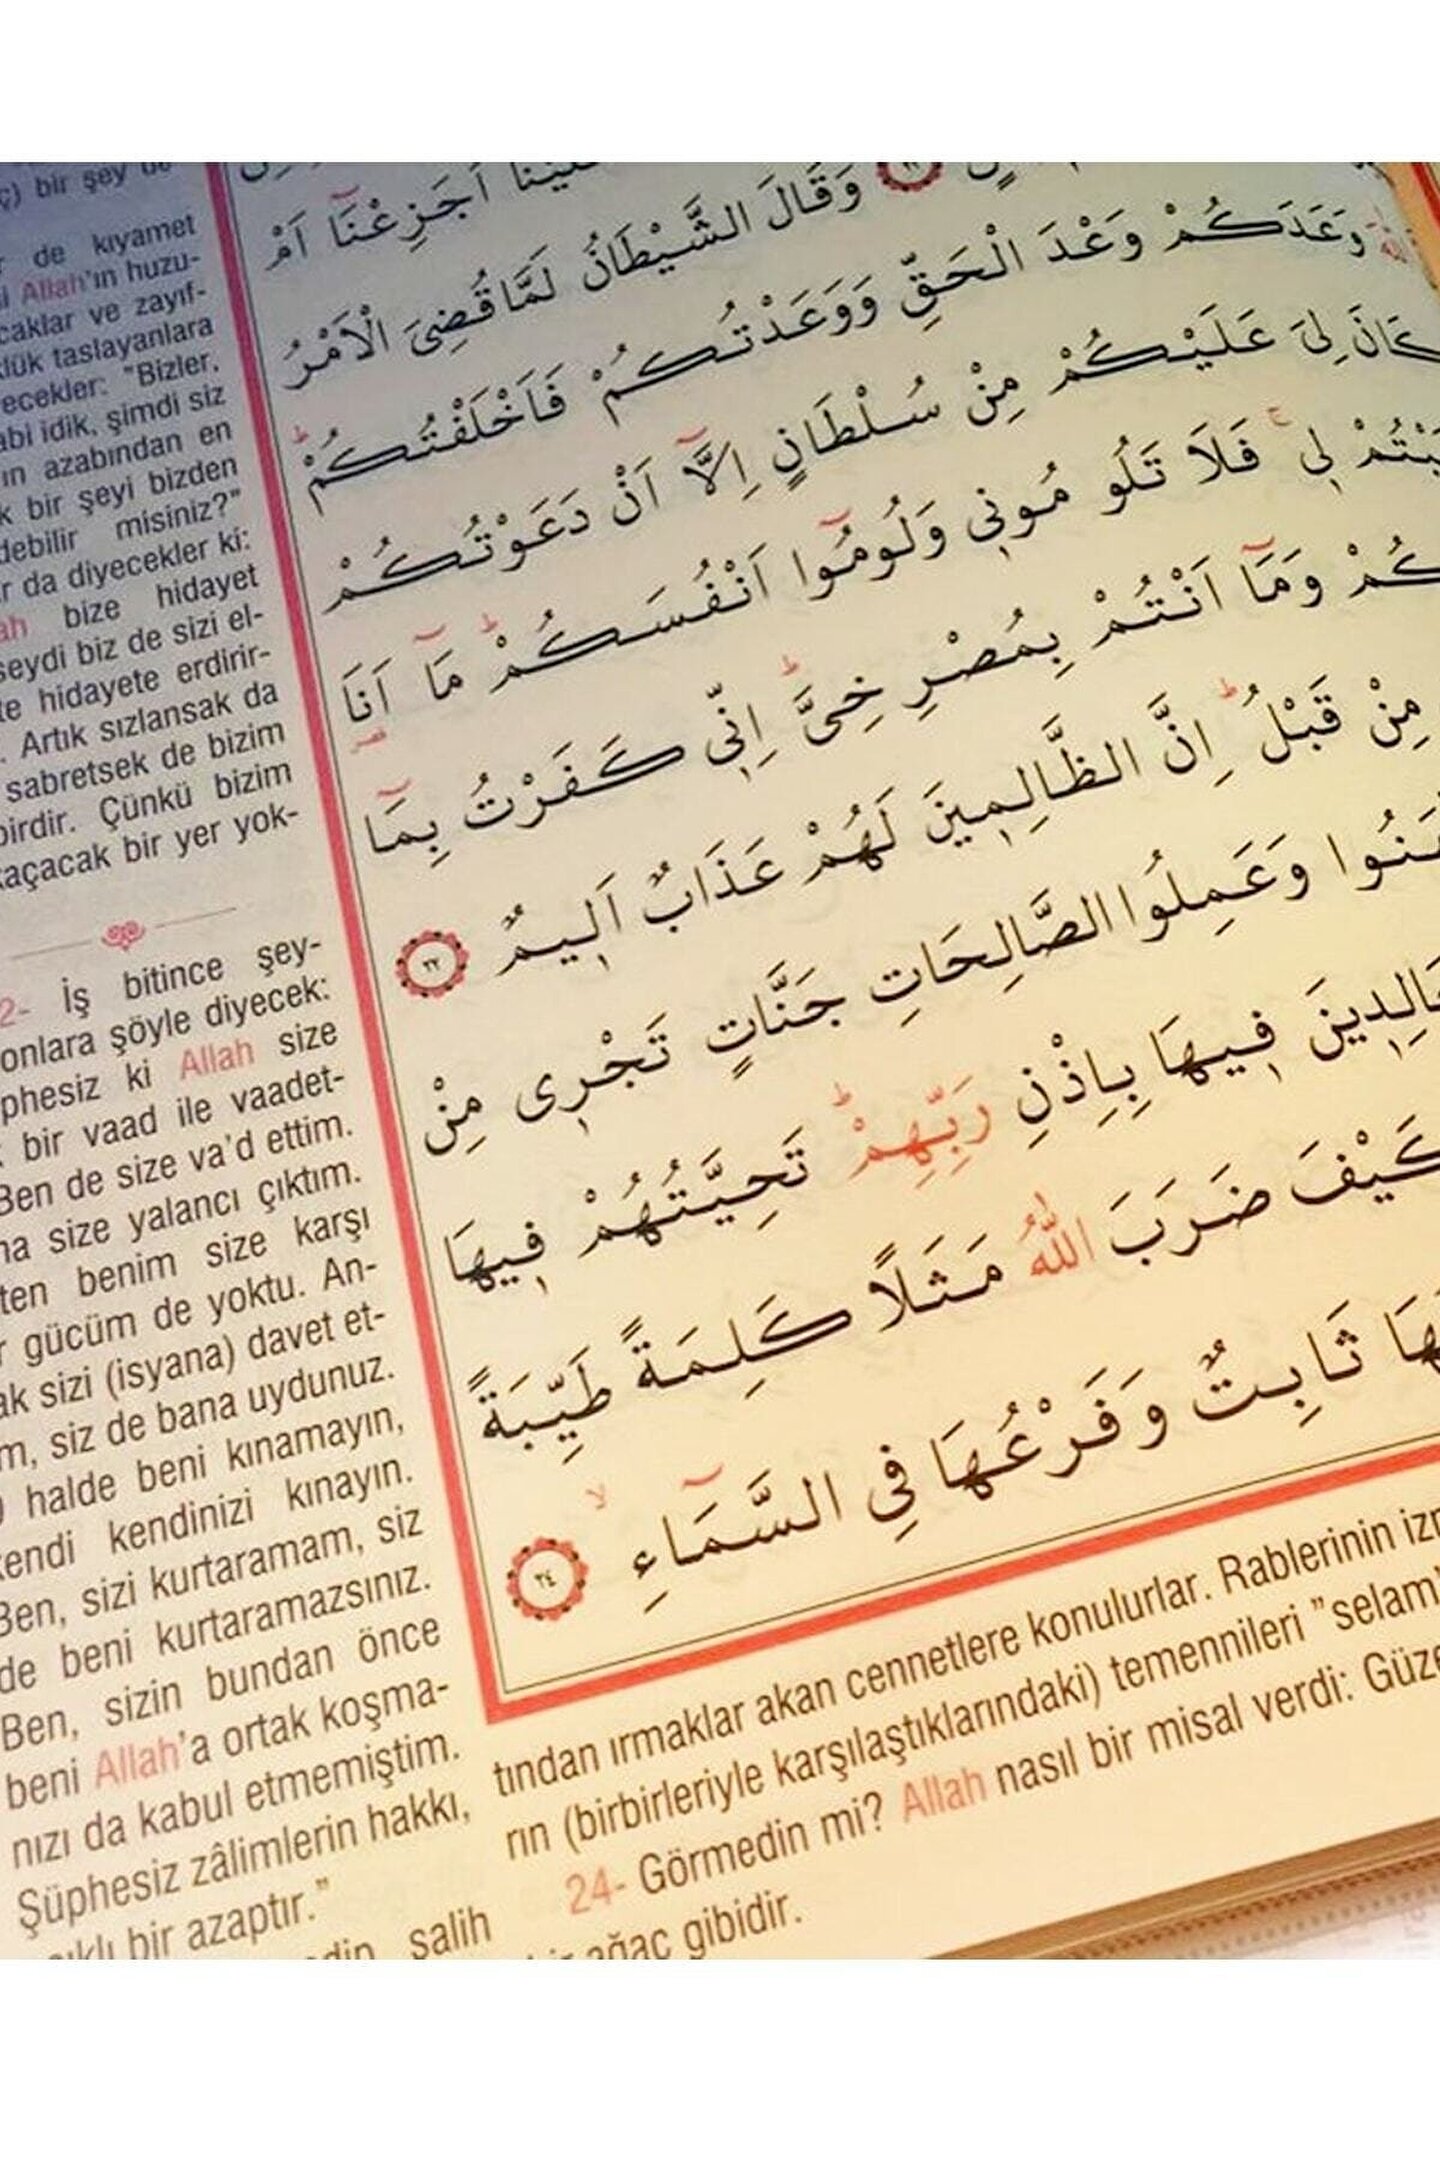 bir şey
de kıyamet
Allah'ın huzu-
caklar ve zayıf-
lük taslayanlara
ecekler: "Bizler,
abi idik, şimdi siz
ın azabından en
k bir şeyi bizden
debilir misiniz?"
r da diyecekler ki:
ah bize hidayet
seydi biz de sizi el-
te hidayete erdirir-
. Artık sızlansak da
sabretsek de bizim
birdir. Çünkü bizim
kaçacak bir yer yok-
2- İş bitince şey-
onlara şöyle diyecek:
phesiz ki Allah size
bir vaad ile vaadet-
Ben de size va'd ettim.
ma size yalancı çıktım.
ten benim size karşı
r gücüm de yoktu. An-
ak sizi (isyana) davet et-
m, siz de bana uydunuz.
halde beni kınamayın,
kendi kendinizi kınayın.
Ben, sizi kurtaramam, siz
de beni kurtaramazsınız.
Ben, sizin bundan önce
beni Allah'a ortak koşma-
nızı da kabul etmemiştim.
Şüphesiz zâlimlerin hakkı,
bir azaptır."
salih
اَجَزِعْنَٓا اَمْ
وَقَالَ الشَّيْطَانُ لَمَّا قُضِىَ الْاَمْرُ
وَعَدَكُمْ وَعْدَ الْحَقِّ وَوَعَدْتُكُمْ فَاَخْلَفْتُكُمْۜ
كَانَ لِىَ عَلَيْكُمْ مِنْ سُلْطَانٍ اِلَّٓا اَنْ دَعَوْتُكُمْ
بْتُمْ ل۪ىۚ فَلَا تَلُومُون۪ى وَلُومُٓوا اَنْفُسَكُمْۜ مَٓا اَنَا۬
كُمْ وَمَٓا اَنْتُمْ بِمُصْرِخِىَّۜ اِنّ۪ى كَفَرْتُ بِمَٓا
مِنْ قَبْلُۜ اِنَّ الظَّالِم۪ينَ لَهُمْ عَذَابٌ اَل۪يمٌ ﴿٢٢﴾
مَنُوا وَعَمِلُوا الصَّالِحَاتِ جَنَّاتٍ تَجْر۪ى مِنْ
خَالِد۪ينَ ف۪يهَا بِاِذْنِ رَبِّهِمْۜ تَحِيَّتُهُمْ ف۪يهَا
كَيْفَ ضَرَبَ اللّٰهُ مَثَلًا كَلِمَةً طَيِّبَةً
هَا ثَابِتٌ وَفَرْعُهَا فِى السَّمَٓاءِۙ ﴿٢٤﴾
tından ırmaklar akan cennetlere konulurlar. Rablerinin iz
rın (birbirleriyle karşılaştıklarındaki) temennileri "selam"
24- Görmedin mi? Allah nasıl bir misal verdi: Güze
ağaç gibidir.